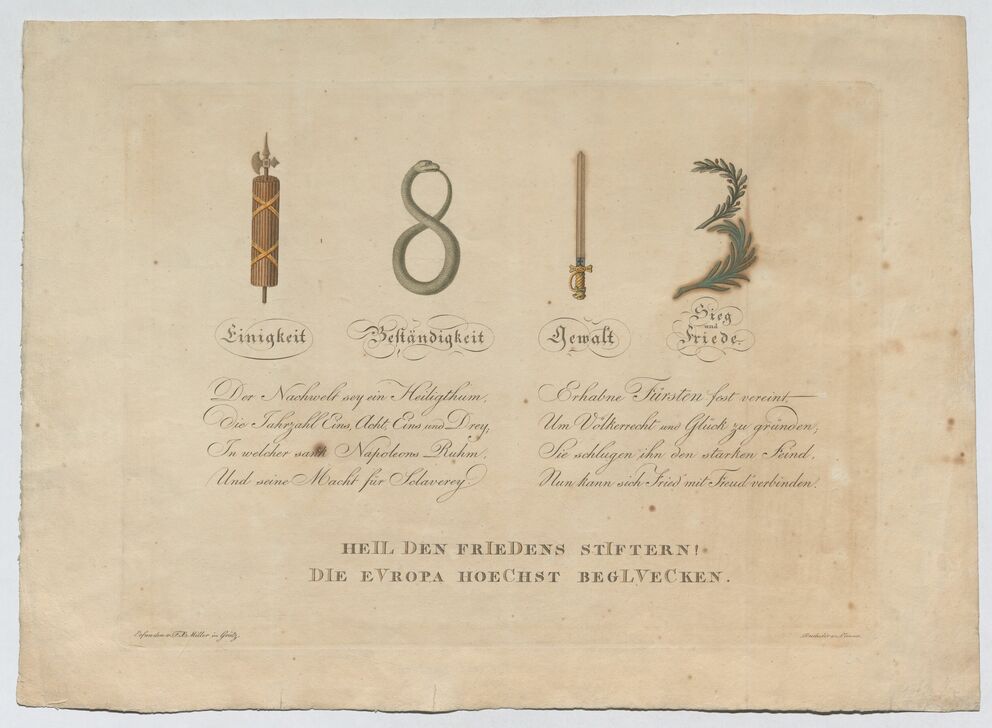 1813
Einigkeit
Beständigkeit
Gewalt
Sieg
und
Friede.
Der Nachwelt sey ein Heiligthum,
Die Jahrzahl Eins, Acht, Eins und Drey,
In welcher sank Napoleons Ruhm,
Und seine Macht für Sclaverey
Erhabne Fürsten fest vereint,—
Um Völkerrecht und Glück zu gründen,
Sie schlugen ihn den starken Feind,
Nun kann sich Fried mit Freud' verbinden.
HEIL DEN FRIEDENS STIFTERN!
DIE EVROPA HOECHST BEGLVECKEN.
Erfunden v. Miller in Grätz.